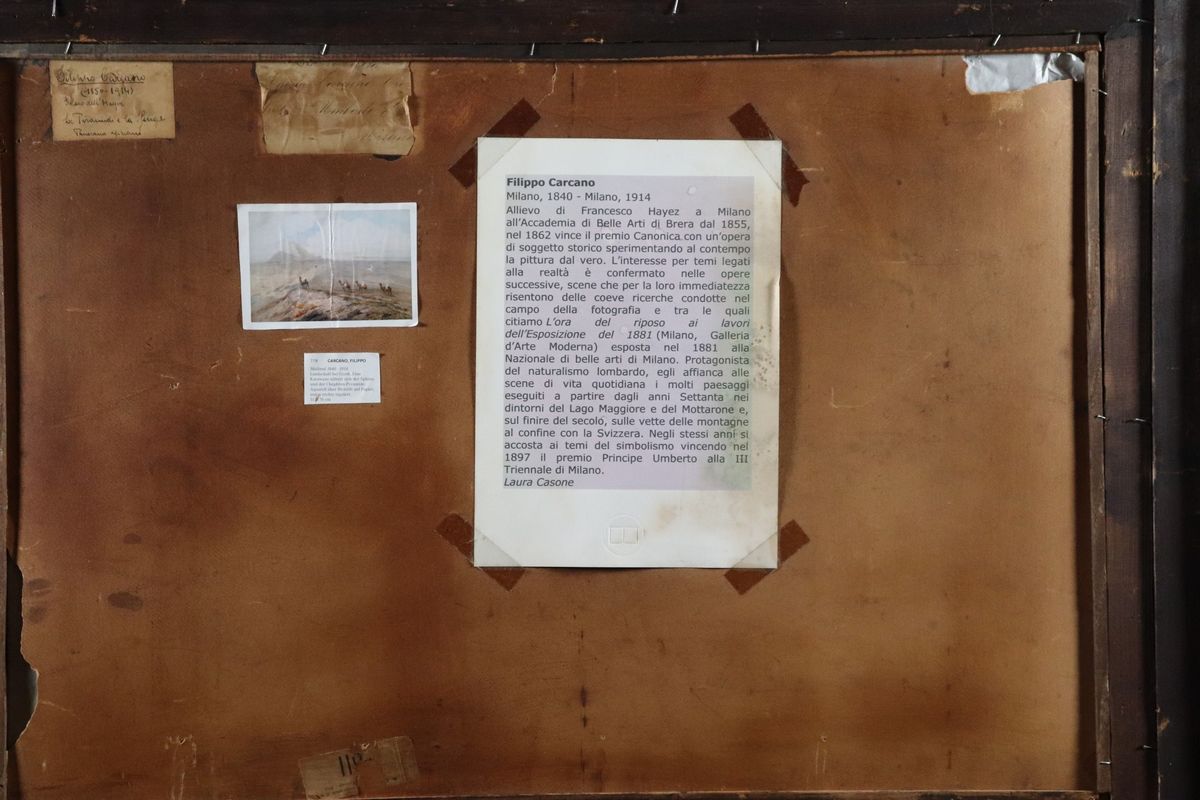 Filippo Carcano
(1850-1914)
Le Piramidi e la Sfinge
Filippo Carcano
Milano, 1840 - Milano, 1914
Allievo di Francesco Hayez a Milano
all'Accademia di Belle Arti di Brera dal 1855,
nel 1862 vince il premio Canonica con un'opera
di soggetto storico sperimentando al contempo
la pittura dal vero. L'interesse per temi legati
alla realtà è confermato nelle opere
successive, scene che per la loro immediatezza
risentono delle coeve ricerche condotte nel
campo della fotografia e tra le quali
citiamo L'ora del riposo ai lavori
dell'Esposizione del 1881 (Milano, Galleria
d'Arte Moderna) esposta nel 1881 alla
Nazionale di belle arti di Milano. Protagonista
del naturalismo lombardo, egli affianca alle
scene di vita quotidiana i molti paesaggi
eseguiti a partire dagli anni Settanta nei
dintorni del Lago Maggiore e del Mottarone e,
sul finire del secolo, sulle vette delle montagne
al confine con la Svizzera. Negli stessi anni si
accosta ai temi del simbolismo vincendo nel
1897 il premio Principe Umberto alla III
Triennale di Milano.
Laura Casone
CARCANO, FILIPPO
Mailand 1840 - 1914
Landschaft bei Gizeh. Eine
Karawane nähert sich der Sphinx
und der Chephren-Pyramide.
Aquarell über Bleistift auf Papier,
110